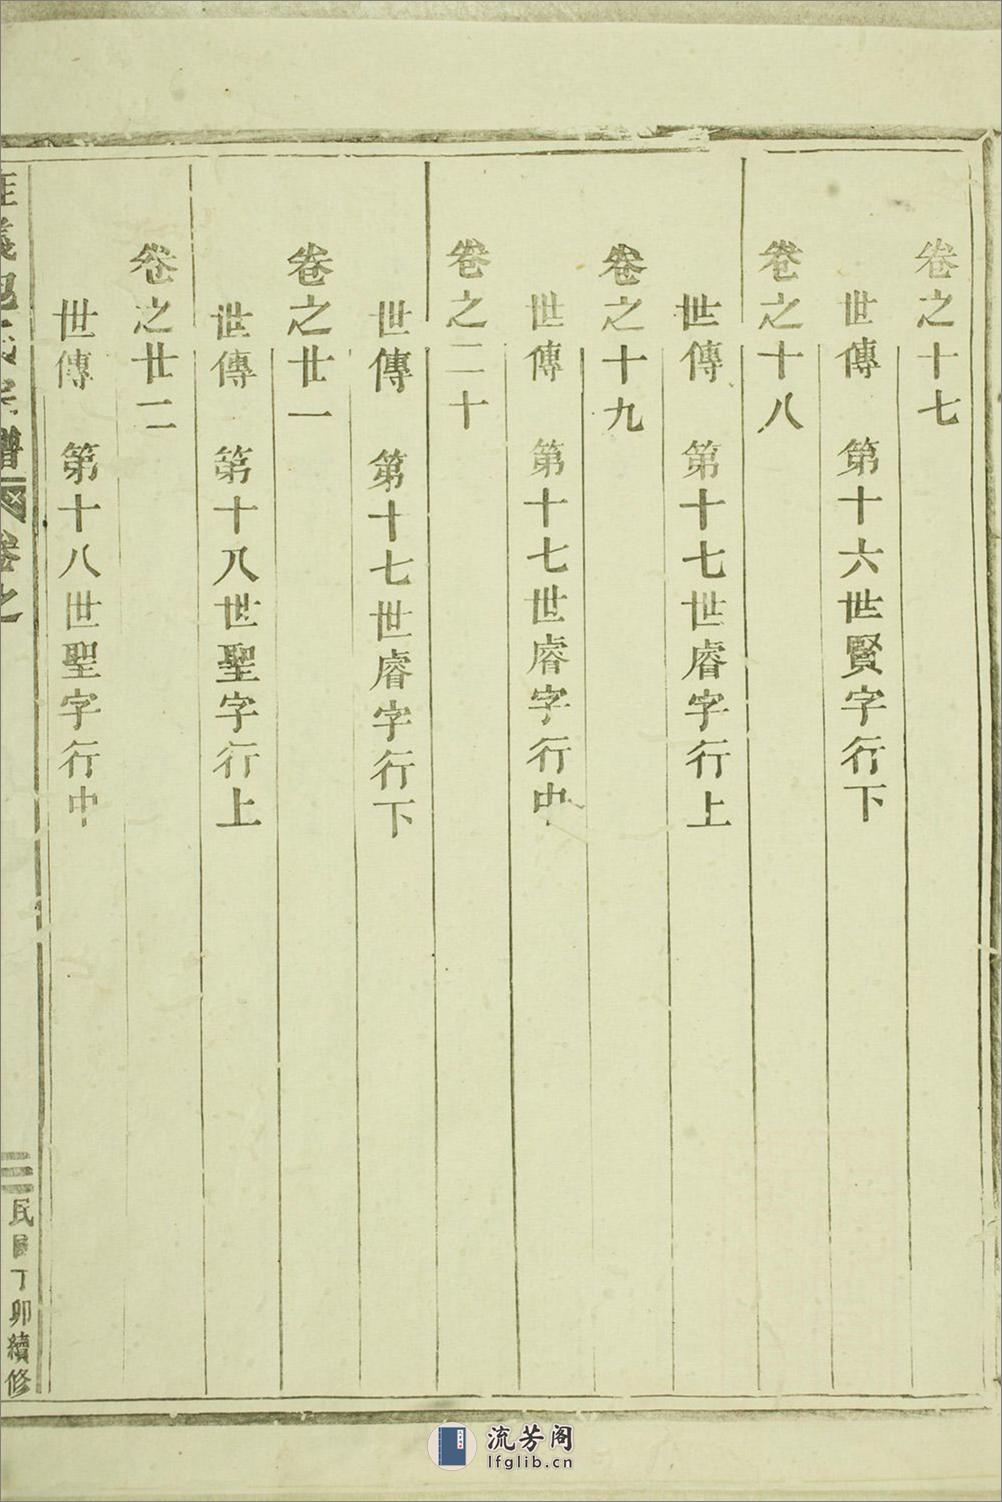 卷之十七
世傳 第十六世賢字行下
卷之十八
世傳 第十七世睿字行上
卷之十九
世傳 第十七世睿字行中
卷之二十
世傳 第十七世睿字行下
卷之廿一
世傳 第十八世聖字行上
卷之廿二
世傳 第十八世聖字行中
義 氏宗譜 卷之
三 民國丁卯續修
流芳阁
lfglib.cn